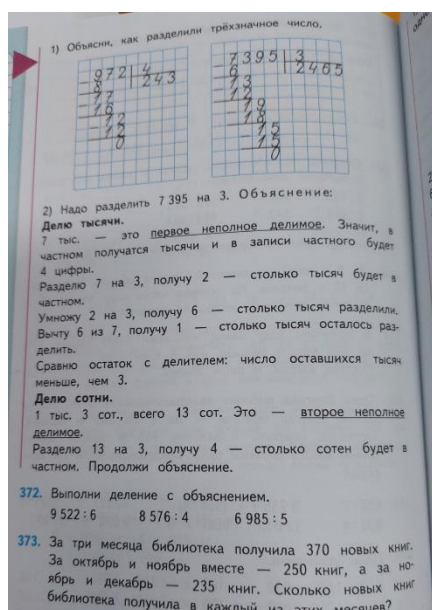 1) Объясни, как разделили трёхзначное число.
972 | 4
8 | 243
17
16
12
12
0
7395 | 3
6 | 2465
13
12
19
18
15
15
0
2) Надо разделить 7 395 на 3. Объяснение:
Делю тысячи.
7 тыс. — это первое неполное делимое. Значит, в
частном получатся тысячи и в записи частного будет
4 цифры.
Разделю 7 на 3, получу 2 — столько тысяч будет в
частном.
Умножу 2 на 3, получу 6 — столько тысяч разделили.
Вычту 6 из 7, получу 1 — столько тысяч осталось раз-
делить.
Сравню остаток с делителем: число оставшихся тысяч
меньше, чем 3.
Делю сотни.
1 тыс. 3 сот., всего 13 сот. Это — второе неполное
делимое.
Разделю 13 на 3, получу 4 — столько сотен будет в
частном. Продолжи объяснение.
372. Выполни деление с объяснением.
9 522 : 6 8 576 : 4 6 985 : 5
373. За три месяца библиотека получила 370 новых книг.
За октябрь и ноябрь вместе — 250 книг, а за но-
ябрь и декабрь — 235 книг. Сколько новых книг
библиотека получила в каждый из этих месяцев?